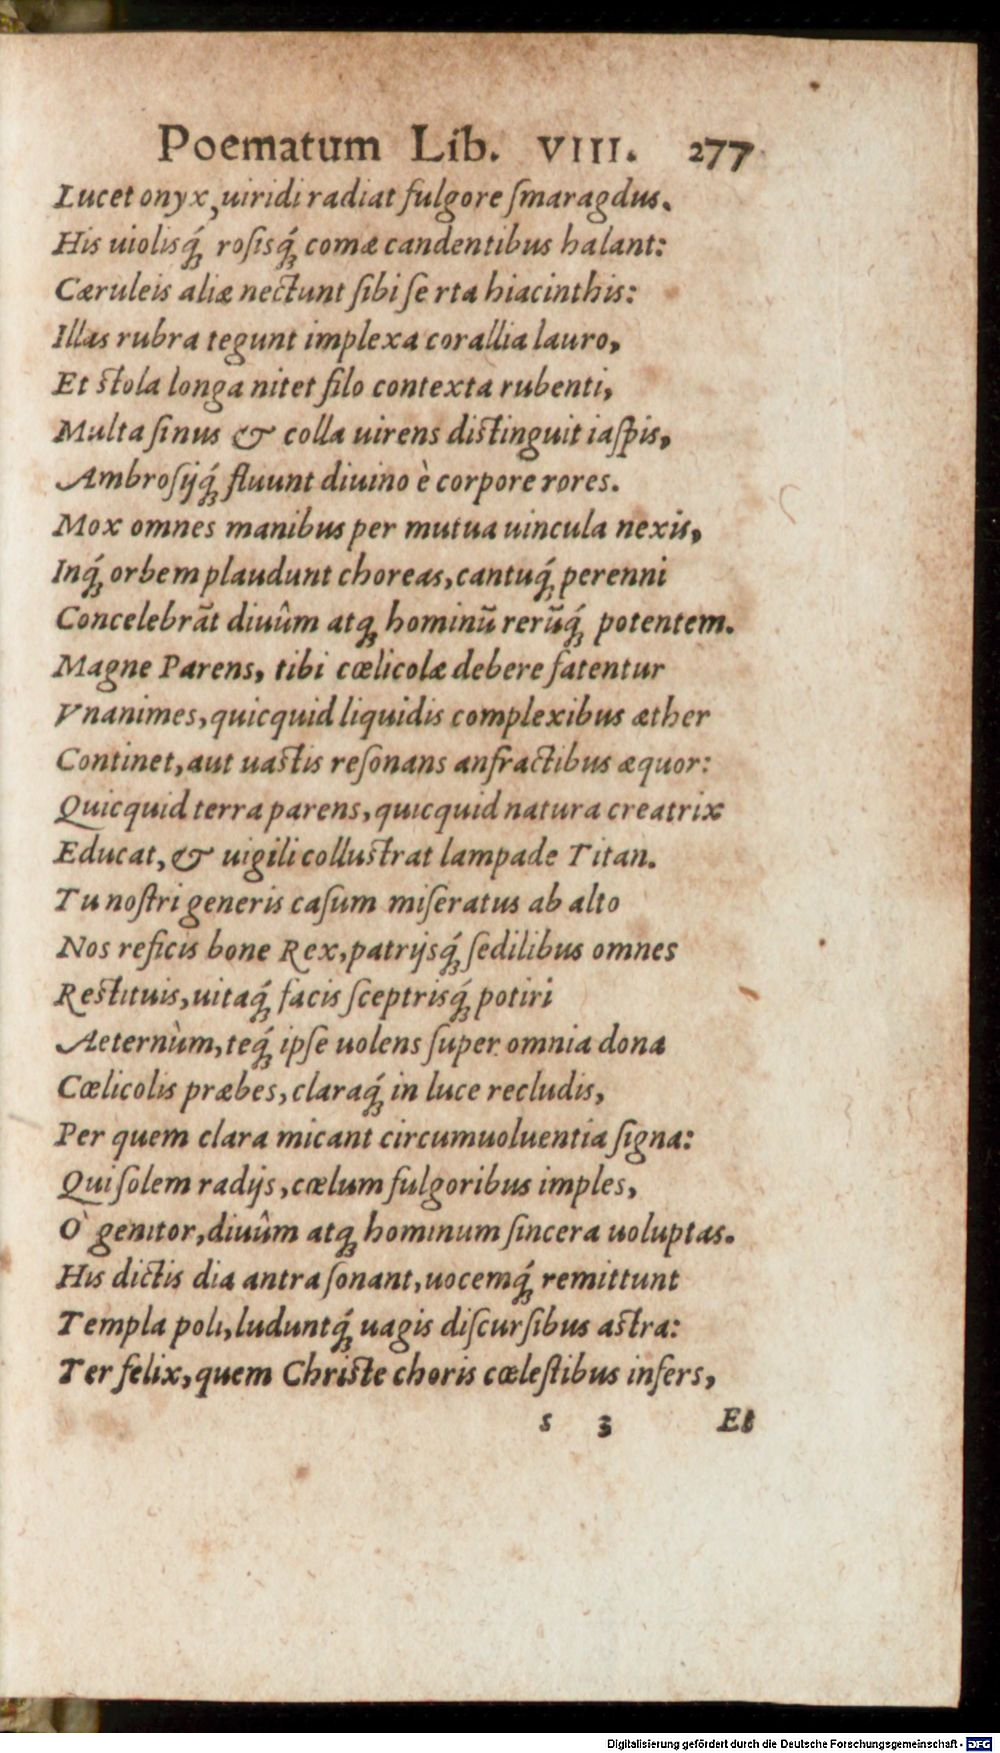 Poematum Lib. VIII. 277
Lucet onyx, uiridi radiat fulgore ſmaragdus.
His uioliſq́ꝫ roſisq́ꝫ comæ candentibus halant:
Cæruleis aliæ nectunt ſibi ſe rta hiacinthis:
Illas rubra tegunt implexa corallia lauro,
Et ſtola longa nitet filo contexta rubenti,
Multa ſinus & colla uirens diſtinguit iaſpis,
Ambroſijq́ꝫ fluunt diuino è corpore rores.
Mox omnes manibus per mutua uincula nexis,
Inq́ꝫ orbem plaudunt choreas, cantuq́ꝫ perenni
Concelebrãt diuûm atqꝫ hominũ rerũq́ꝫ potentem.
Magne Parens, tibi cœlicolæ debere fatentur
Vnanimes, quicquid liquidis complexibus æther
Continet, aut uaſtis reſonans anfractibus æquor:
Quicquid terra parens, quicquid natura creatrix
Educat, & uigili colluſtrat lampade Titan.
Tu noſtri generis caſum miſeratus ab alto
Nos reficis bone Rex, patrijsq́ꝫ ſedilibus omnes
Reſtituis, uitaq́ꝫ facis ſceptrisq́ꝫ potiri
Aeternùm, teq́ꝫ ipſe uolens ſuper omnia dona
Cœlicolis præbes, claraq́ꝫ in luce recludis,
Per quem clara micant circumuoluentia ſigna:
Qui ſolem radijs, cœlum fulgoribus imples,
O` genitor, diuûm atqꝫ hominum ſincera uoluptas.
His dictis dia antra ſonant, uocemq́ꝫ remittunt
Templa poli, luduntq́ꝫ uagis diſcurſibus aſtra:
Ter felix, quem Chriſte choris cœleſtibus inſers,
s 3 Et
Digitalisierung gefördert durch die Deutsche Forschungsgemeinschaft - DFG